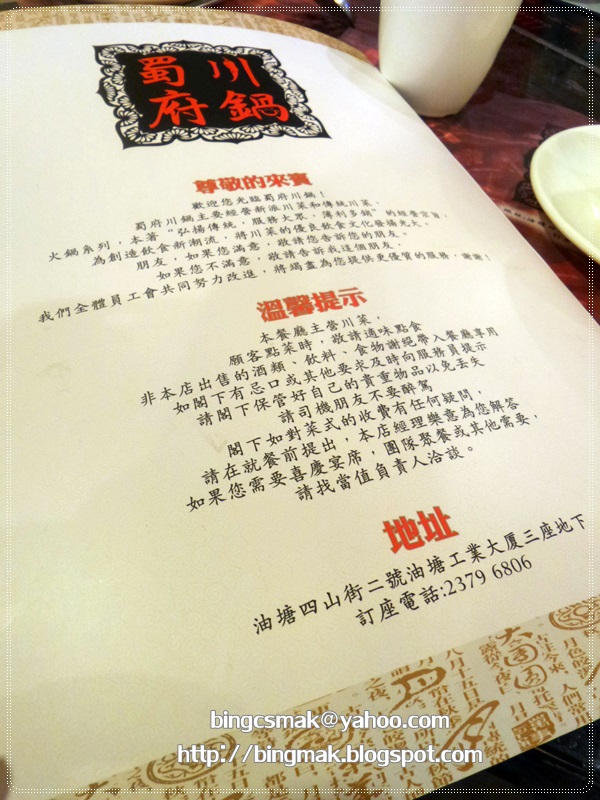 蜀府
川鍋
尊敬的來賓
歡迎您光臨蜀府川鍋！
蜀府川鍋主要經營新派川菜和傳統川菜、
火鍋系列，本著“弘揚傳統，服務大眾，薄利多銷”的經營宗旨，
為創造飲食新潮流，將川菜的優良飲食文化發揚光大。
朋友，如果您滿意，敬請您告訴您的朋友。
如果您不滿意，敬請告訴我這個朋友，
我們全體員工會共同努力改進，將竭盡為您提供更優質的服務，謝謝！
溫馨提示
本餐廳主營川菜，
顧客點菜時，敬請適味點食
非本店出售的酒類、飲料、食物謝絕帶入餐廳享用
如閣下有忌口或其他要求及時向服務員提示
請閣下保管好自己的貴重物品以免丟失
請司機朋友不要醉駕
閣下如對菜式的收費有任何疑問，
請在就餐前提出，本店經理樂意為您解答
如果您需要喜慶宴席，團隊聚餐或其他需要，
請找當值負責人洽談。
地址
油塘四山街二號油塘工業大厦三座地下
訂座電話:2379 6806
bingcsmak@yahoo.com
http://bingmak.blogspot.com